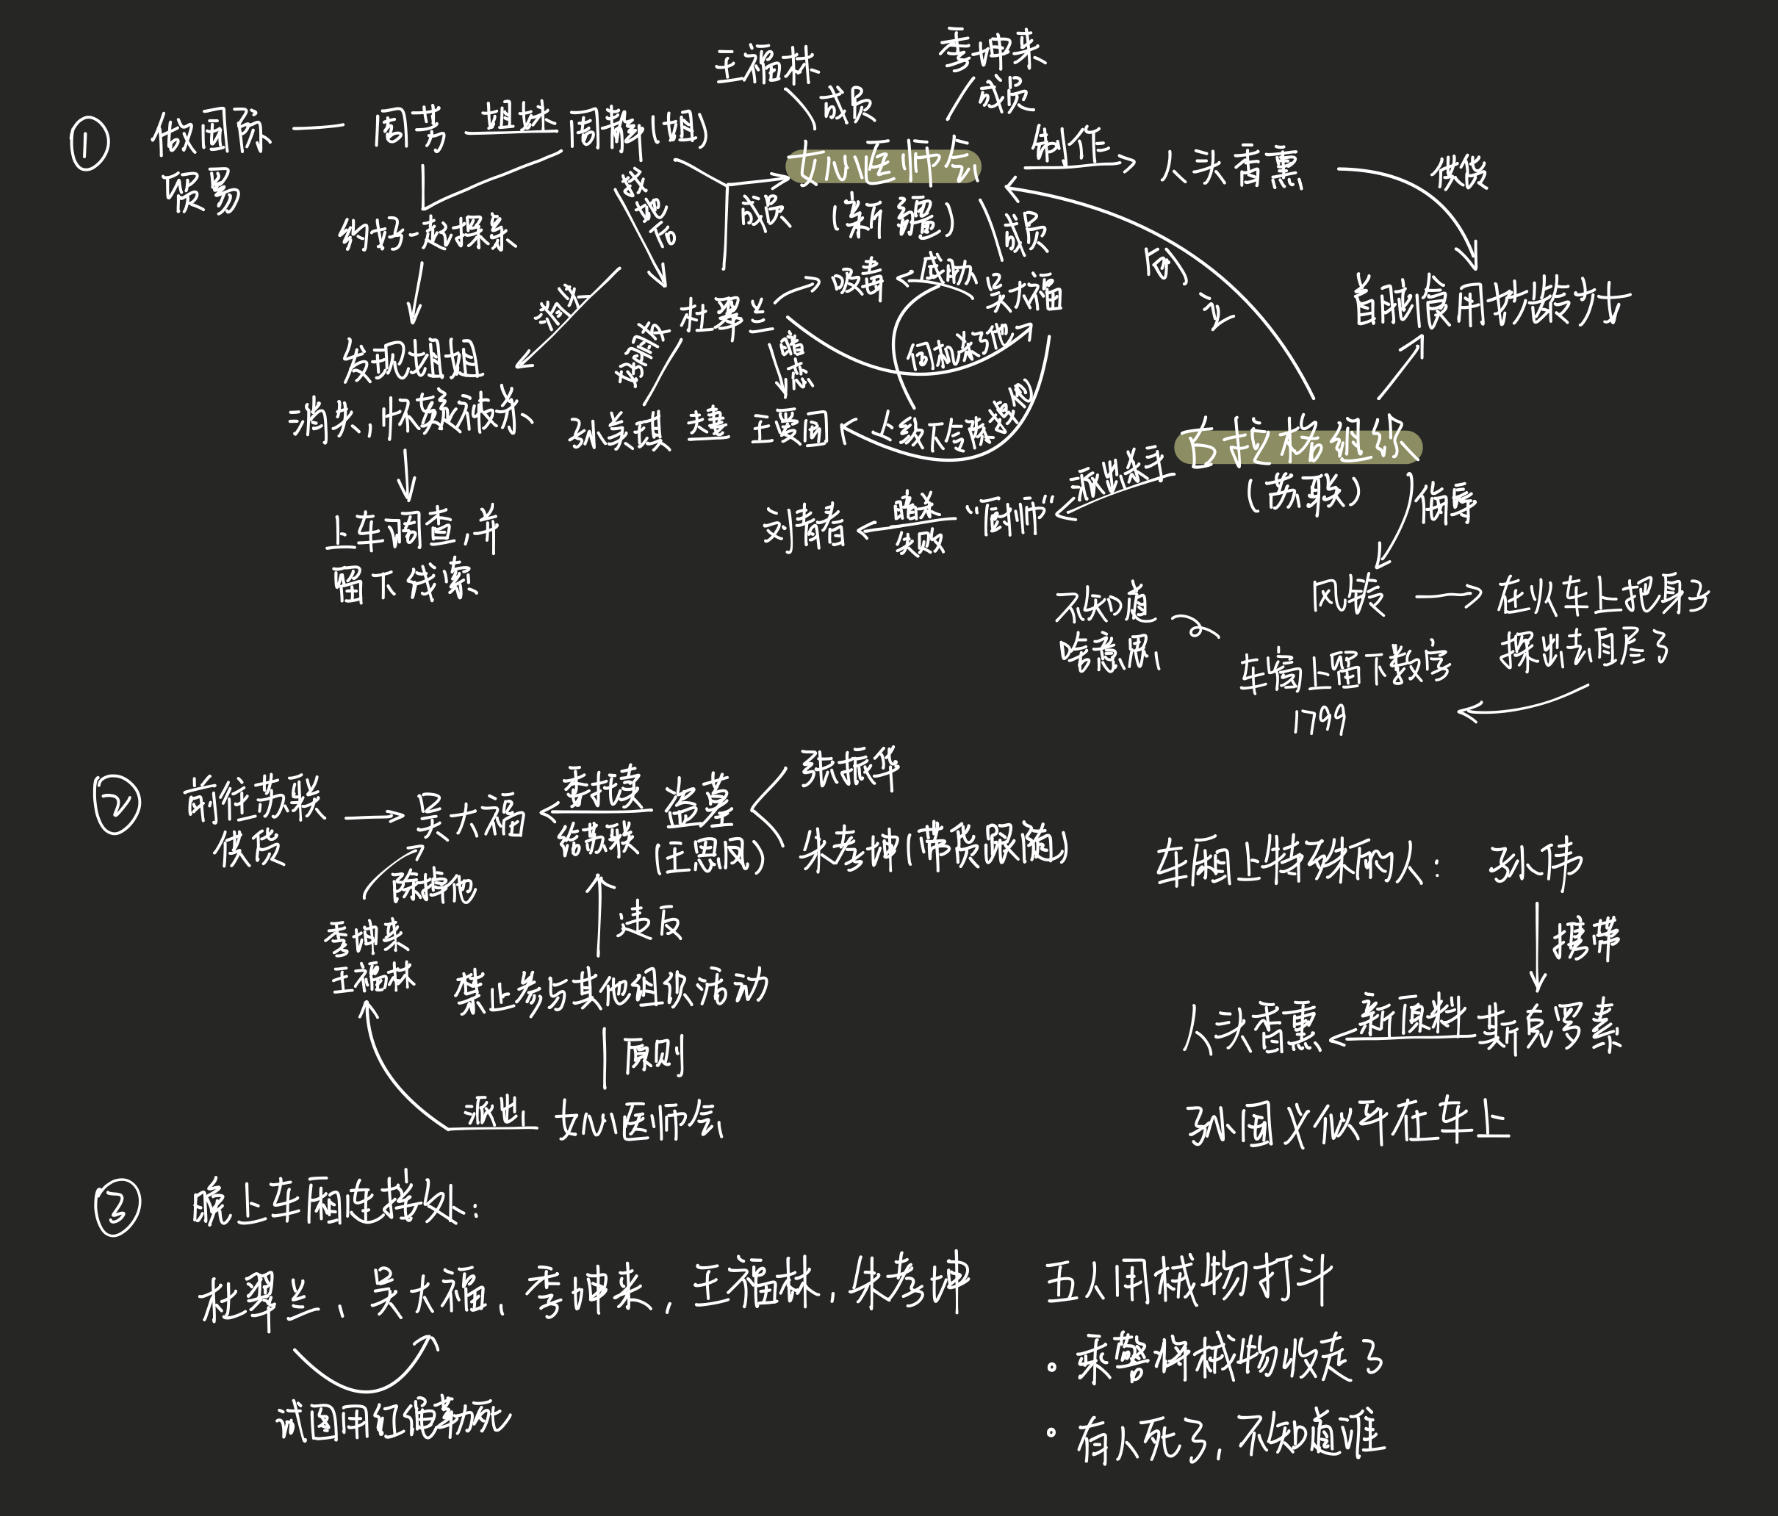 王福林
季坤来
成员
成员
① 做国际 — 周芳 姐妹 周静(姐)
贸易
女心医师会
(新疆)
制作
人头香薰
供货
找她后
成员
成员
约好一起探亲
消失
杜翠兰
吸毒
威胁
吴大福
创立
首脑食用妙龄少女
发现姐姐
消失,怀疑被杀
好朋友
暗恋
伺机杀了他
孙美琪 夫妻 王爱国
上级下令除掉他
古拉格组织
(苏联)
派出杀手
侮辱
上车调查,并
留下线索
刘青春
暗杀
失败
“厨师”
风铃
在火车上把身子
探出去自尽了
不知道
啥意思
车窗上留下数字
1799
② 前往苏联
供货
吴大福
委托卖
给苏联
盗墓
(王思凤)
张振华
朱孝坤(带货跟随)
除掉他
季坤来
王福林
违反
禁止参与其他组织活动
原则
派出
女心医师会
车厢上特殊的人: 孙伟
携带
人头香薰 新原料 斯克罗素
孙国义似乎在车上
③ 晚上车厢连接处:
杜翠兰、吴大福、季坤来,王福林,朱孝坤
试图用红绳勒死
五人用械物打斗
· 乘警将械物收走了
· 有人死了,不知道谁